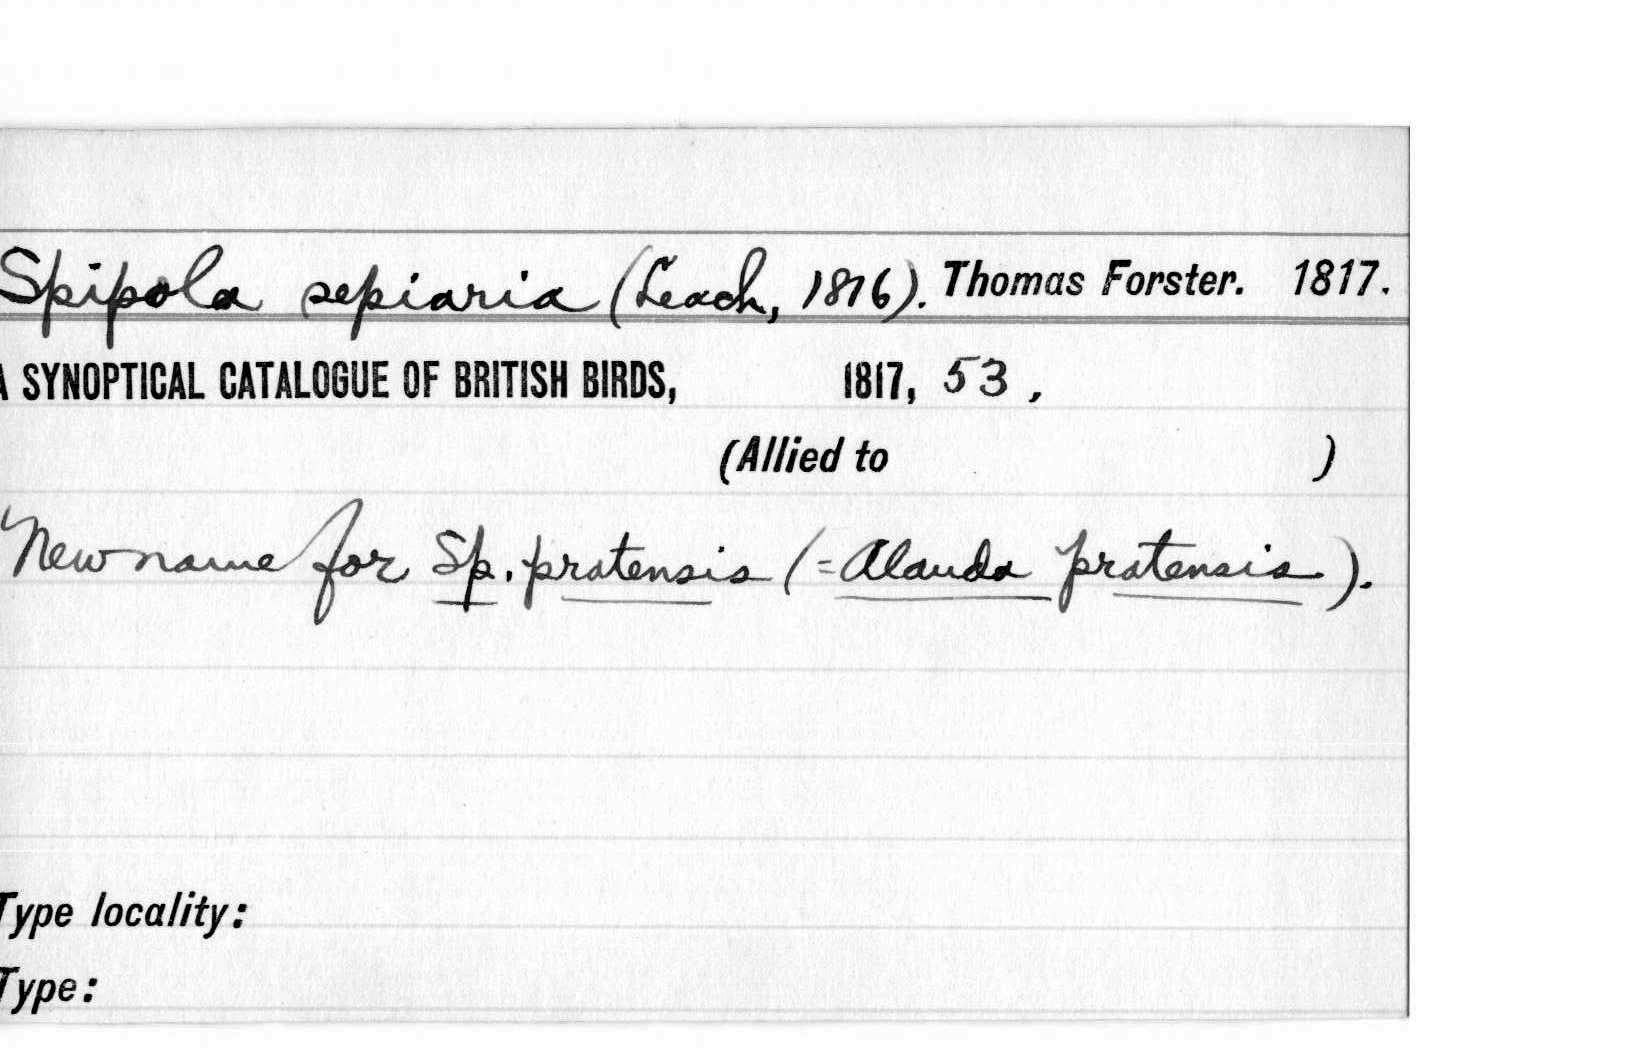 Spipola sepiaria (Leach, 1816). Thomas Forster. 1817.
A SYNOPTICAL CATALOGUE OF BRITISH BIRDS, 1817, 53,
(Allied to )
New name for Sp. pratensis (=Alauda pratensis).
Type locality:
Type: